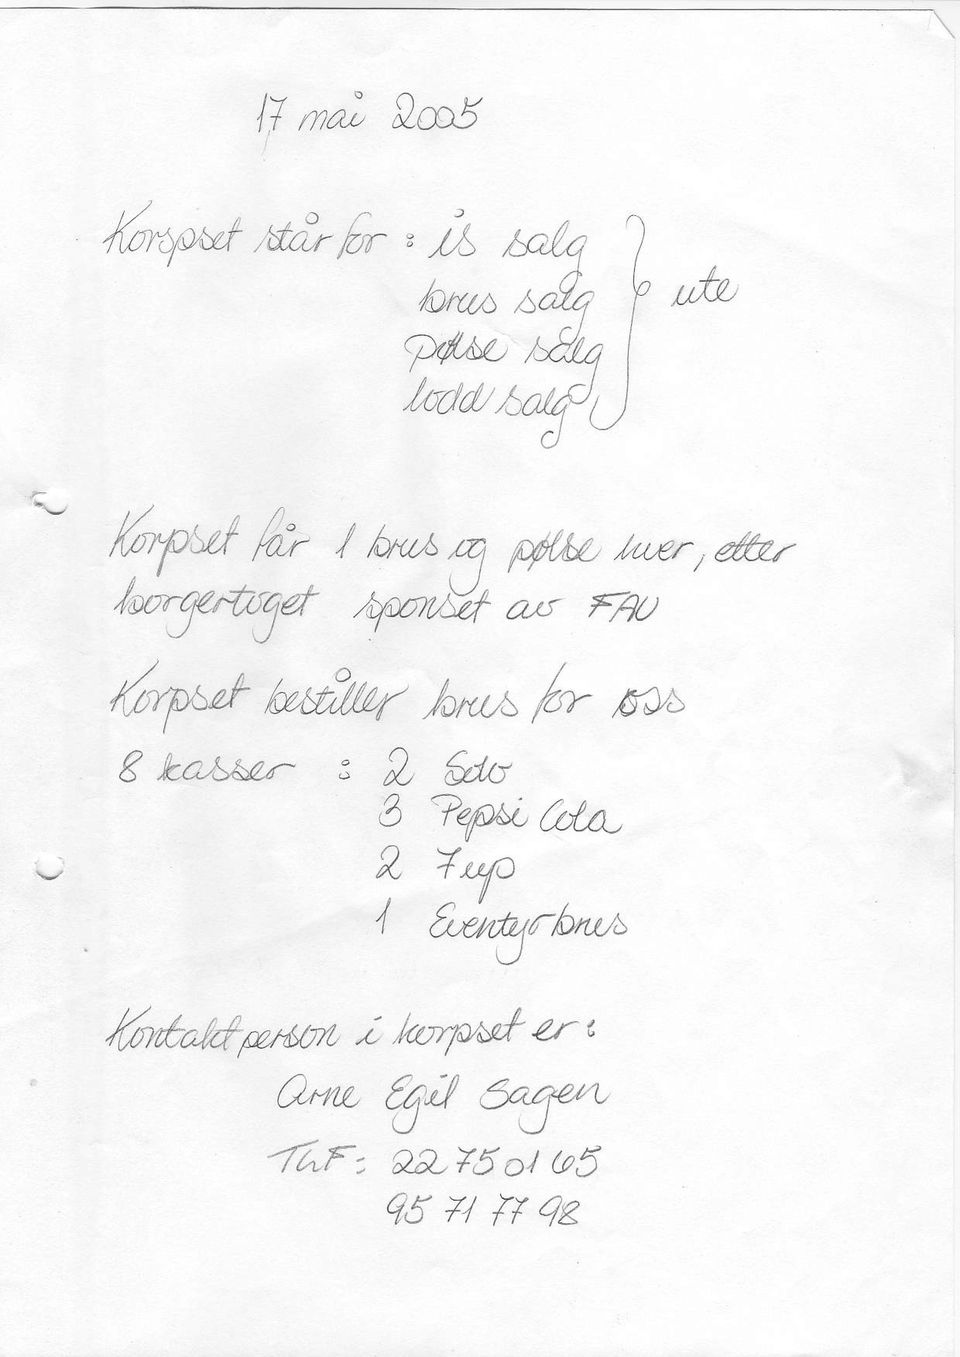 17 mai 2005
Korspset står for : is salg
brus salg } ute
pølse salg
lodd salg
Korpset får 1 brus og pølse hver, etter
borgertoget sponset av FAU
Korpset bestiller brus for oss
8 kasser : 2 Solo
3 Pepsi Cola
2 7up
1 Eventyrbrus
Kontaktperson i korpset er :
Arne Egil Sagen
Tlf : 22 75 01 65
95 71 77 98